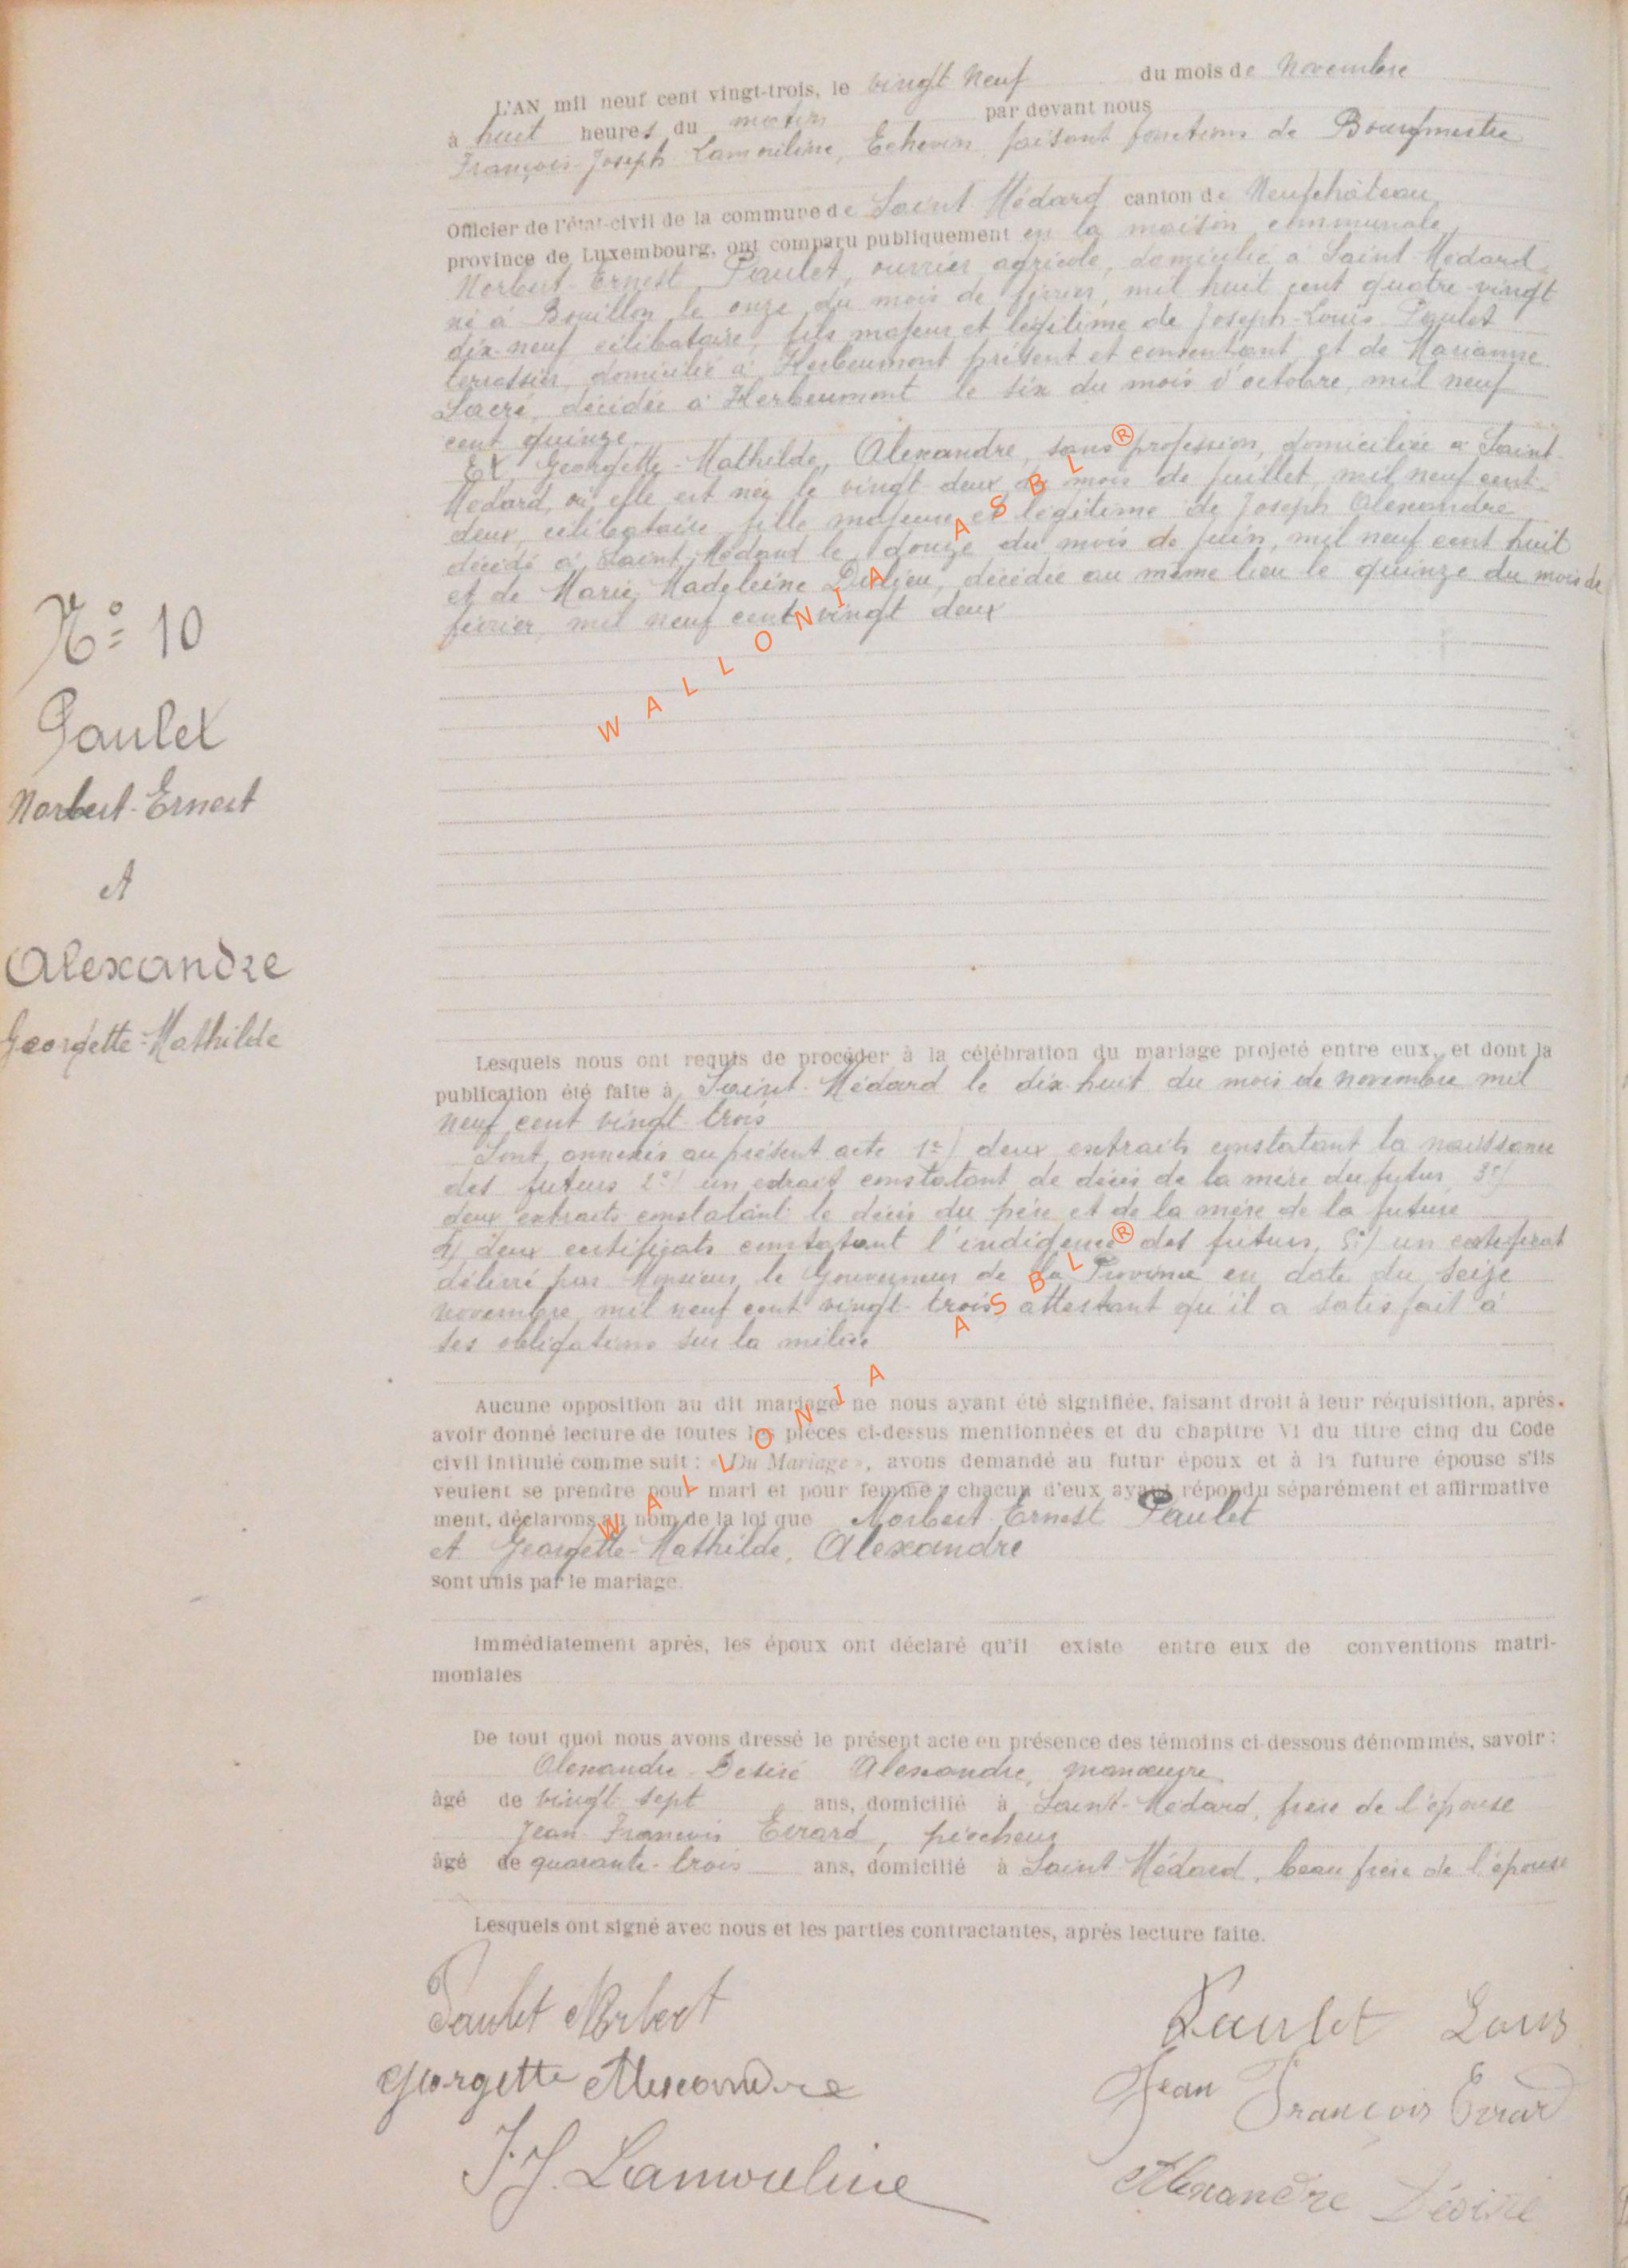 L'AN mil neuf cent vingt-trois, le vingt neuf du mois de Novembre
à huit heures du matin par devant nous
François-Joseph Lamouline, Echevin, faisant fonctions de Bourgmestre
Officier de l'état-civil de la commune de Saint Médard canton de Neufchâteau
province de Luxembourg, ont comparu publiquement en la maison communale,
Norbert-Ernest Paulet, ouvrier agricole, domicilié à Saint-Médard,
né à Bouillon le onze du mois de février, mil huit cent quatre-vingt
dix-neuf célibataire, fils majeur et légitime de Joseph-Louis Paulet
terrassier, domicilié à Herbeumont présent et consentant et de Marianne
Sacré, décédée à Herbeumont le six du mois d'octobre, mil neuf
cent quinze.
Et Georgette-Mathilde, Alexandre, sans profession, domiciliée à Saint-
Médard, où elle est née le vingt deux du mois de juillet, mil neuf cent
deux, célibataire, fille majeure et légitime de Joseph Alexandre
décédé à Saint-Médard le douze du mois de juin, mil neuf cent huit
et de Marie Madeleine, décédée au même lieu le quinze du mois de
février, mil neuf cent vingt deux
WALLONIA ASBL ®
N° 10
Paulet
Norbert-Ernest
et
Alexandre
Georgette-Mathilde
Lesquels nous ont requis de procéder à la célébration du mariage projeté entre eux, et dont la
publication été faite à Saint-Médard le dix-huit du mois de novembre mil
neuf cent vingt-trois
Sont annexés au présent acte 1°) deux extraits constatant la naissance
des futurs 2°) un extrait constatant de décès de la mère du futur, 3°)
deux extraits constatant le décès du père et de la mère de la future
4) deux certificats constatant l'indigence des futurs, 5°) un certificat
délivré par Monsieur le Gouverneur de la Province en date du seize
novembre mil neuf cent vingt-trois attestant qu'il a satisfait à
ses obligations sur la milice
Aucune opposition au dit mariage ne nous ayant été signifiée, faisant droit à leur réquisition, après.
avoir donné lecture de toutes les pièces ci-dessus mentionnées et du chapitre VI du titre cinq du Code
civil intitulé comme suit : « Du Mariage », avons demandé au futur époux et à la future épouse s'ils
veulent se prendre pour mari et pour femme ; chacun d'eux ayant répondu séparément et affirmative
ment, déclarons au nom de la loi que Norbert Ernest Paulet
et Georgette-Mathilde, Alexandre
sont unis par le mariage.
WALLONIA ASBL ®
Immédiatement après, les époux ont déclaré qu'il existe entre eux de conventions matri-
moniales
De tout quoi nous avons dressé le présent acte en présence des témoins ci-dessous dénommés, savoir :
Alexandre-Désiré Alexandre, manœuvre
âgé de vingt-sept ans, domicilié à Saint-Médard, frère de l'épouse
Jean-François Evrard,
âgé de quarante-trois ans, domicilié à Saint-Médard, beau frère de l'épouse
Lesquels ont signé avec nous et les parties contractantes, après lecture faite.
Paulet Norbert
Paulet Louis
Georgette Alexandre
Jean François Evrard
J. J. Lamouline
Alexandre Désiré